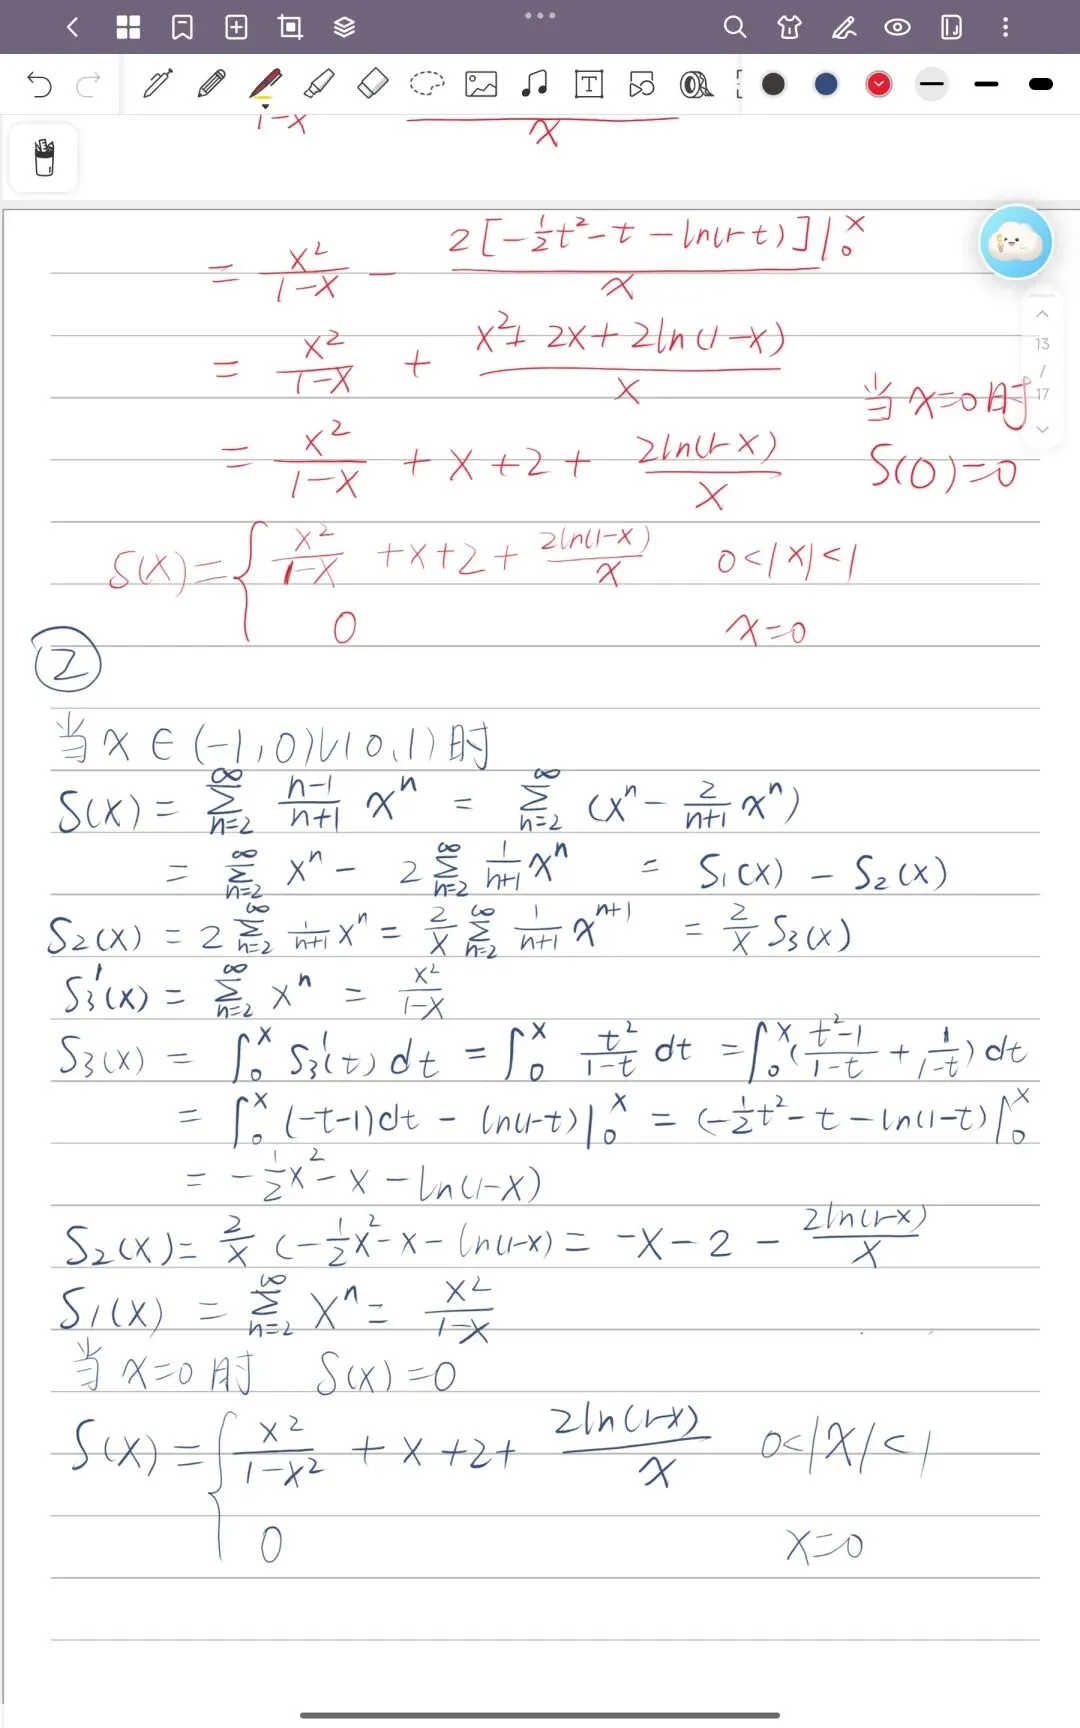 1-x x
= x²/(1-x) - 2[-½t²-t-ln(1-t)]|₀ˣ / x
= x²/(1-x) + (x²+2x+2ln(1-x))/x
当x=0时
= x²/(1-x) + x+2+ 2ln(1-x)/x
S(0)=0
S(x)={ x²/(1-x) +x+2+ 2ln(1-x)/x 0<|x|<1
0 x=0
②
当x∈(-1,0)∪(0,1)时
S(x) = ∑_{n=2}^{∞} (n-1)/(n+1) xⁿ = ∑_{n=2}^{∞} (xⁿ - 2/(n+1) xⁿ)
= ∑_{n=2}^{∞} xⁿ - 2∑_{n=2}^{∞} 1/(n+1) xⁿ = S₁(x) - S₂(x)
S₂(x) = 2∑_{n=2}^{∞} 1/(n+1) xⁿ = 2/x ∑_{n=2}^{∞} 1/(n+1) xⁿ⁺¹ = 2/x S₃(x)
S₃'(x) = ∑_{n=2}^{∞} xⁿ = x²/(1-x)
S₃(x) = ∫₀ˣ S₃'(t)dt = ∫₀ˣ t²/(1-t) dt = ∫₀ˣ ((t²-1)/(1-t) + 1/(1-t))dt
= ∫₀ˣ (-t-1)dt - ln(1-t)|₀ˣ = (-½t²-t-ln(1-t))|₀ˣ
= -½x²-x-ln(1-x)
S₂(x)= 2/x (-½x²-x-ln(1-x) = -x-2- 2ln(1-x)/x
S₁(x) = ∑_{n=2}^{∞} xⁿ = x²/(1-x)
当x=0时 S(x)=0
S(x)={ x²/(1-x²) +x+2+ 2ln(1-x)/x 0<|x|<1
0 x=0
13
/
17